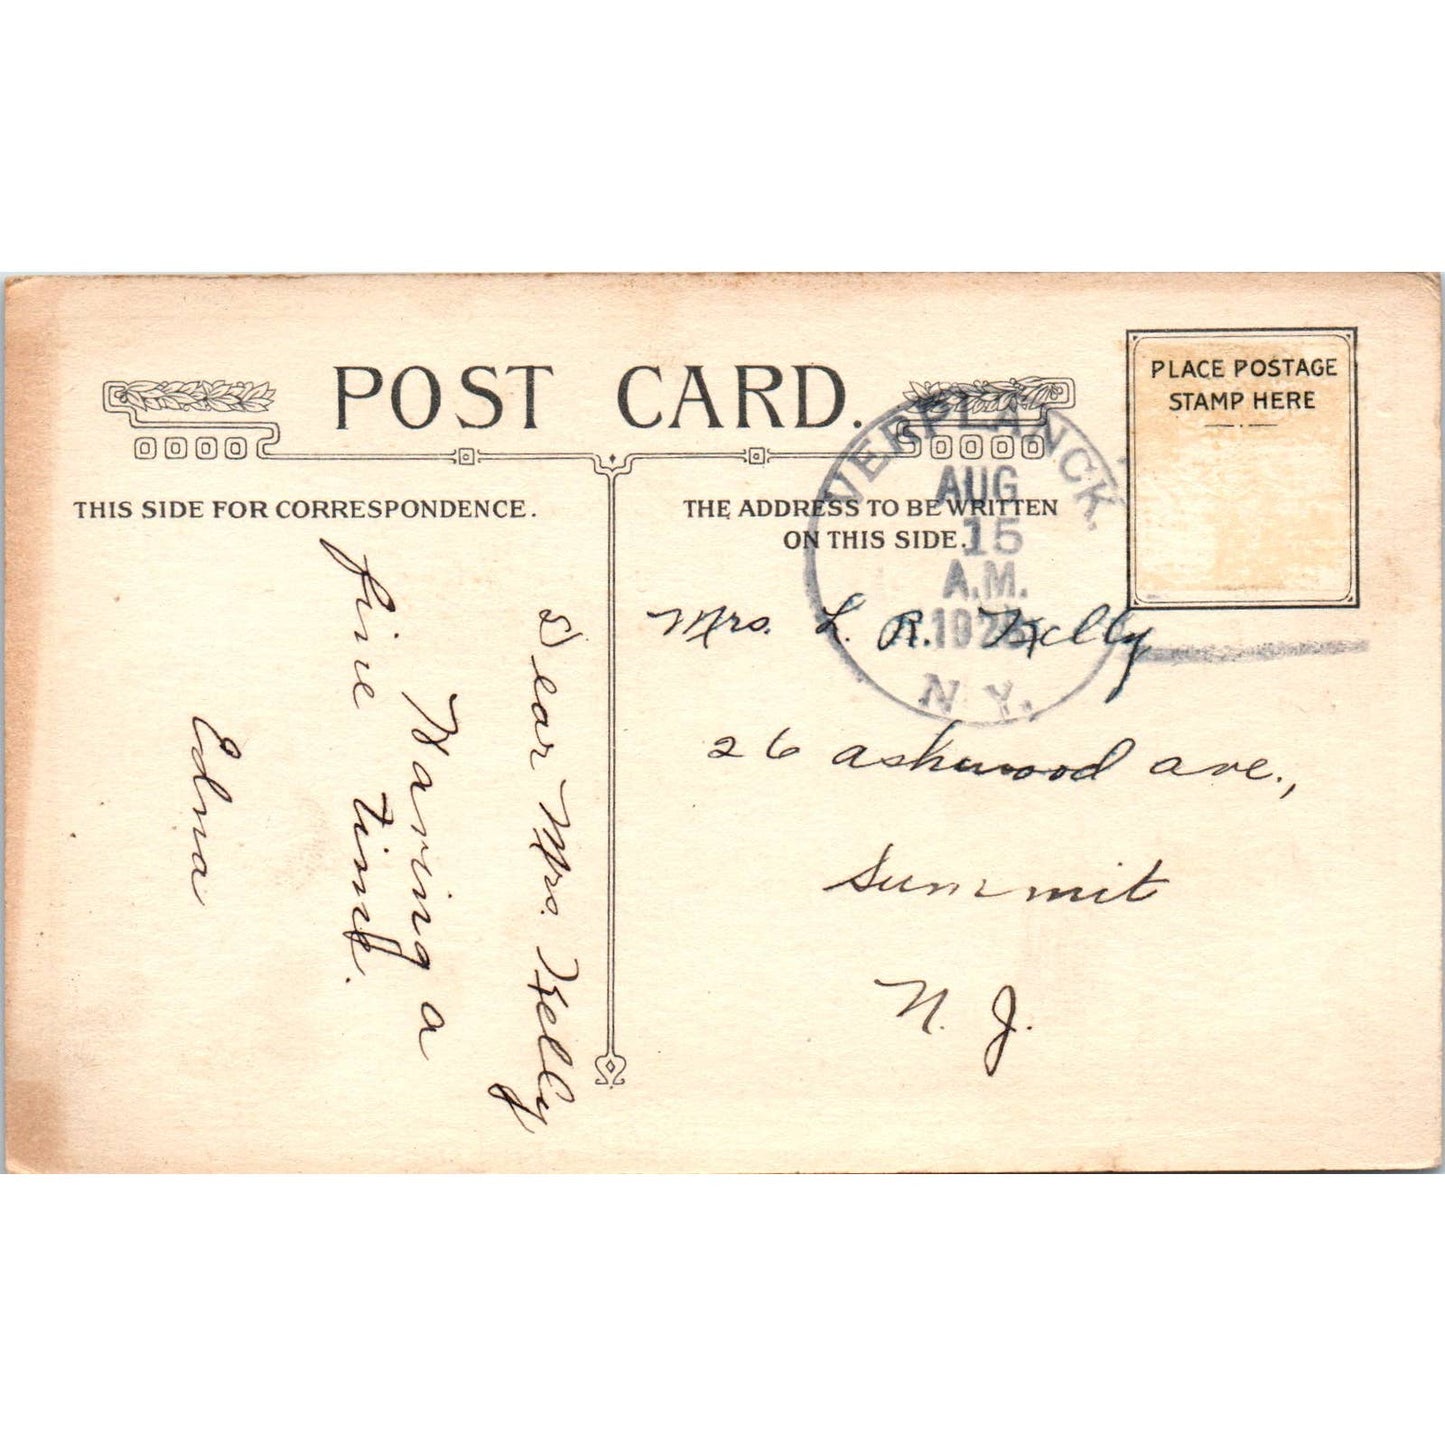 POST CARD.
THIS SIDE FOR CORRESPONDENCE.
THE ADDRESS TO BE WRITTEN
ON THIS SIDE.
PLACE POSTAGE
STAMP HERE
VERPLANCK.
AUG
15
A.M.
N.Y.
Mrs. L. R. Kelly
26 ashwood ave.,
Summit
N. J.
Dear Mrs. Kelly
Having a
fine time.
Edna